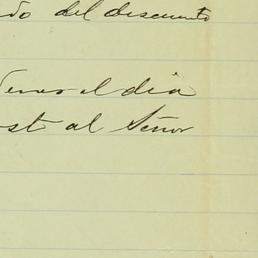 do del descuento
el dia
st al Señor